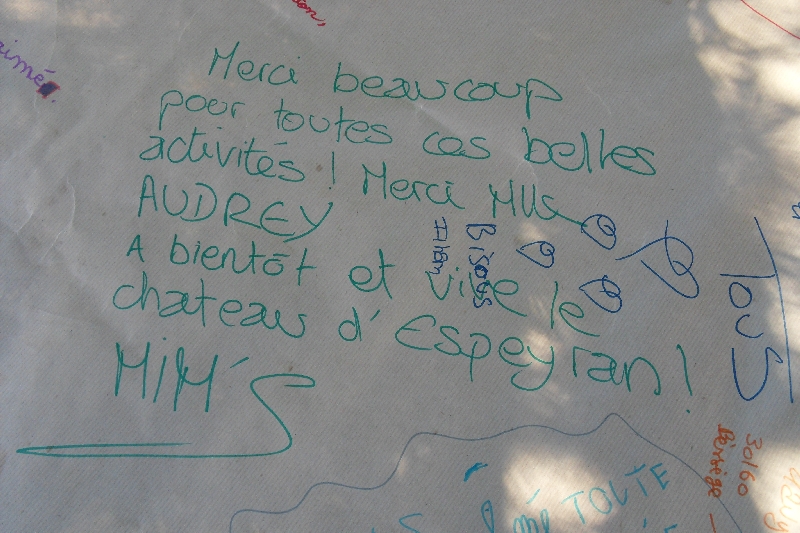 Merci beaucoup
pour toutes ces belles
activités ! Merci Mlle
AUDREY
A bientôt et vive le
chateau d'Espeyran !
MiM'S
Bisous
TOUS
30160
Bessège
aimé
TOUTE